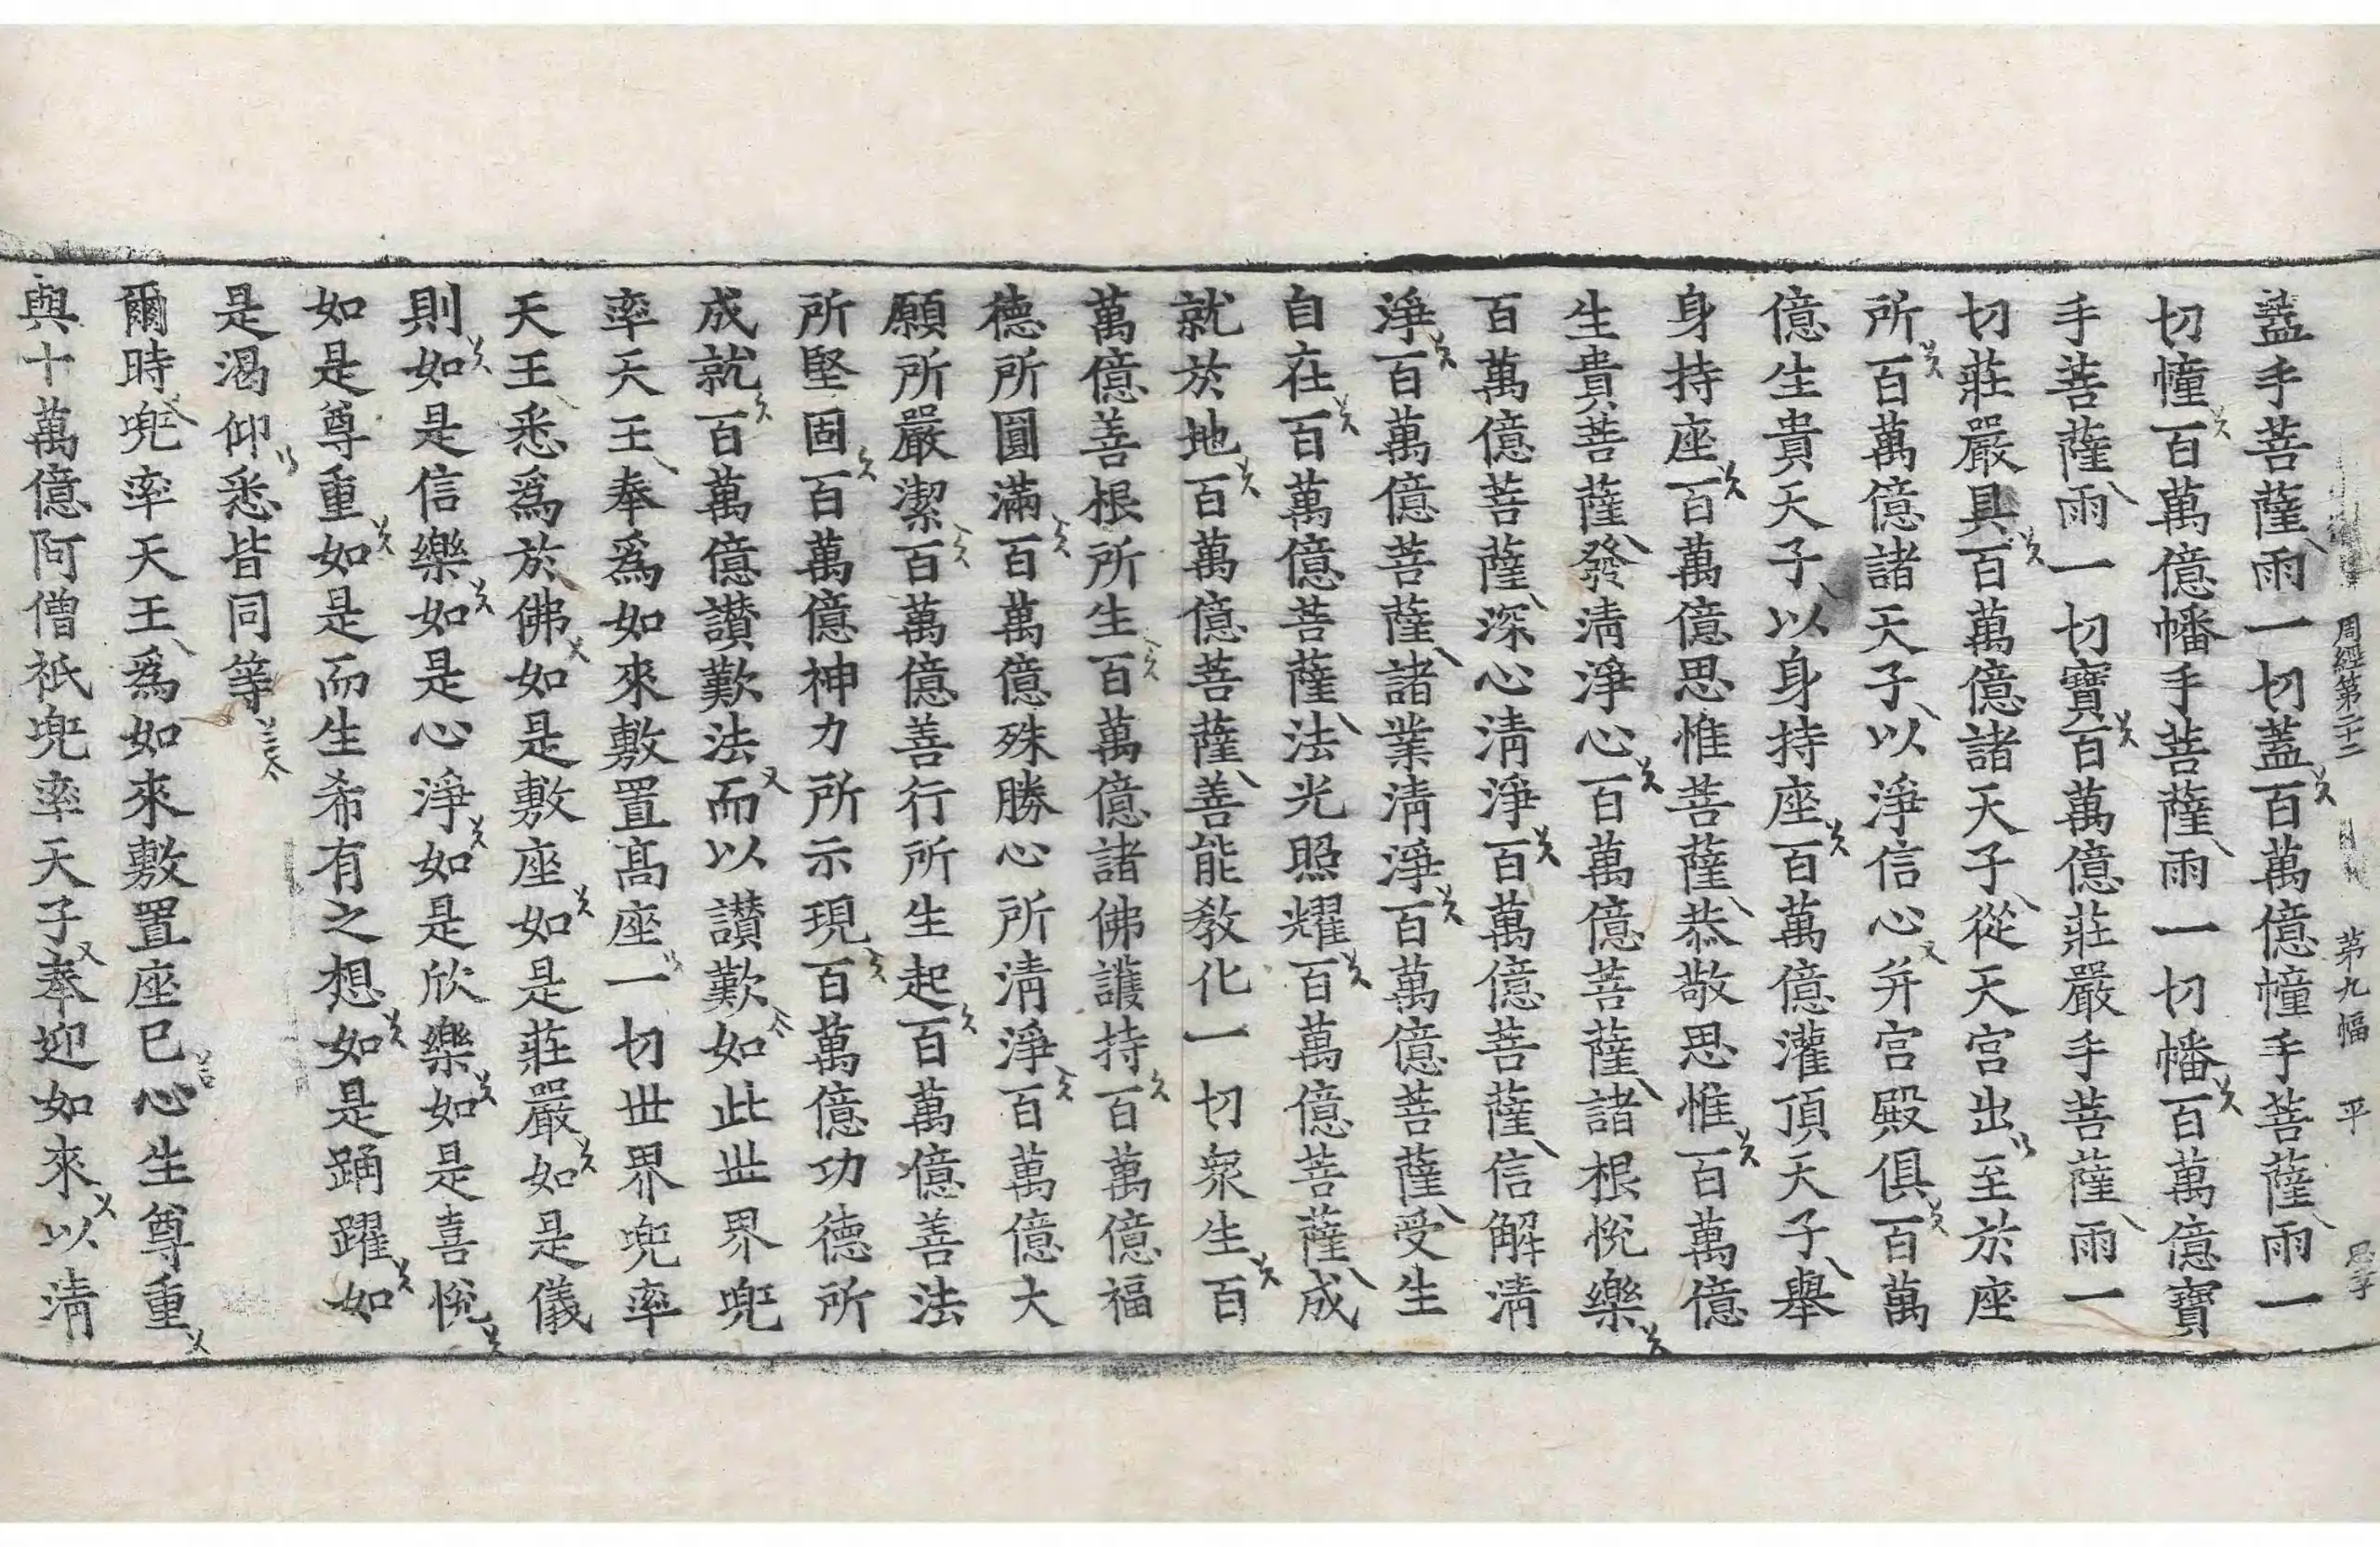 周經第二十二 第九幅 平
蓋手菩薩雨一切蓋百萬億幢手菩薩雨一
切幢百萬億幡手菩薩雨一切幡百萬億寶
手菩薩雨一切寶百萬億莊嚴手菩薩雨一
切莊嚴具百萬億諸天子從天宮出至於座
所百萬億諸天子以淨信心并宮殿俱百萬
億生貴天子以身持座百萬億灌頂天子舉
身持座百萬億思惟菩薩恭敬思惟百萬億
生貴菩薩發清淨心百萬億菩薩諸根悅樂
百萬億菩薩深心清淨百萬億菩薩信解清
淨百萬億菩薩諸業清淨百萬億菩薩受生
自在百萬億菩薩法光照耀百萬億菩薩成
就於地百萬億菩薩善能教化一切衆生百
萬億善根所生百萬億諸佛護持百萬億福
德所圓滿百萬億殊勝心所清淨百萬億大
願所嚴潔百萬億善行所生起百萬億善法
所堅固百萬億神力所示現百萬億功德所
成就百萬億讚歎法而以讚歎如此世界兜
率天王奉爲如來敷置高座一切世界兜率
天王悉爲於佛如是敷座如是莊嚴如是儀
則如是信樂如是心淨如是欣樂如是喜悅
如是尊重如是而生希有之想如是踊躍如
是渴仰悉皆同等
爾時兜率天王爲如來敷置座已心生尊重
與十萬億阿僧祇兜率天子奉迎如來以清